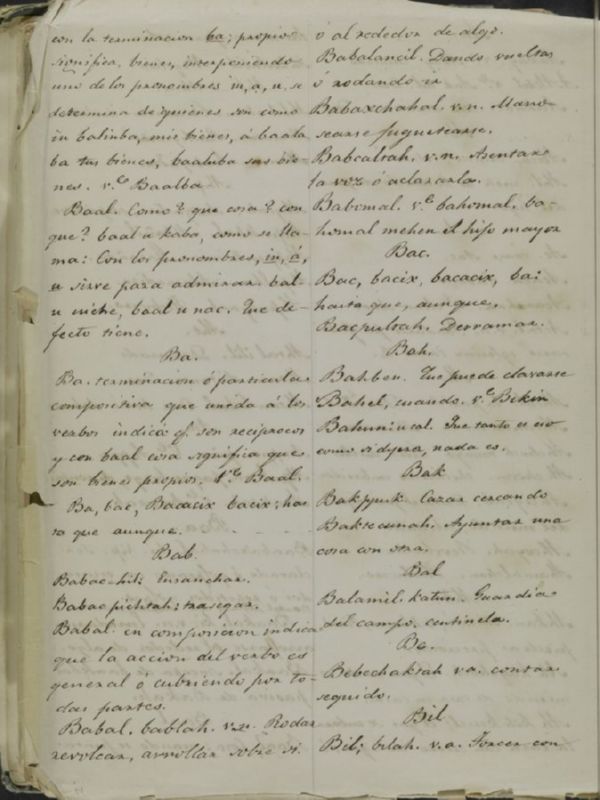 con la terminacion ba; propio
significa, bienes, interponiendo
uno de los pronombres in, a, u, se
determina de quienes son como
in balinba, mis bienes, á baala
ba tus bienes, baaluba sus bie-
nes. v.e Baalba
Baal. Como? que cosa? con
que? baal u kaba, como se lla-
ma: Con los pronombres, in, á,
u sirve para admirar. bal-
u uiche, baal u nac. Que de-
fecto tiene.
Ba.
Ba. terminacion ó particula
compositiva que unida á los
verbos indica q.e son reciprocos
y con baal cosa significa que
son bienes propios. V.e Baal.
Ba, bac, Bacacix bacix; has
ta que aunque.
Bab.
Babac-hil; Ensanchar.
Babac pichtah; trasegar.
Babal. en composicion indica
que la accion del verbo es
general ó cubriendo por to-
das partes.
Babal. bablah. v.n. Rodar
revolcar, arrollar sobre si
ó al rededor de algo.
Babalancil. Dando vueltas
ó rodando ir
Babaxchahal. v.n. Mano
searse juguetearse.
Babcaltah. v.n. Asentar
la voz ó aclararla.
Babomal. v.e bahomal. ba-
homal mehen el hijo mayor
Bac.
Bac, bacix, bacacix, ba:
hasta que, aunque.
Bacpultah. Derramar.
Bah.
Bahben. Que puede clavarse
Bahel, cuando. v.e Bikin
Que tanto es eso
como si dijera, nada es.
Bak
Bakpyuk. Cazar cercando
Baktecunah. Ayuntar una
cosa con otra.
Bal
Balamil. katun. Guardia
del campo, centinela.
Be.
Bebechaktah v.a. contar
seguido.
Bil
Bil; bilah. v.a. Torcer con